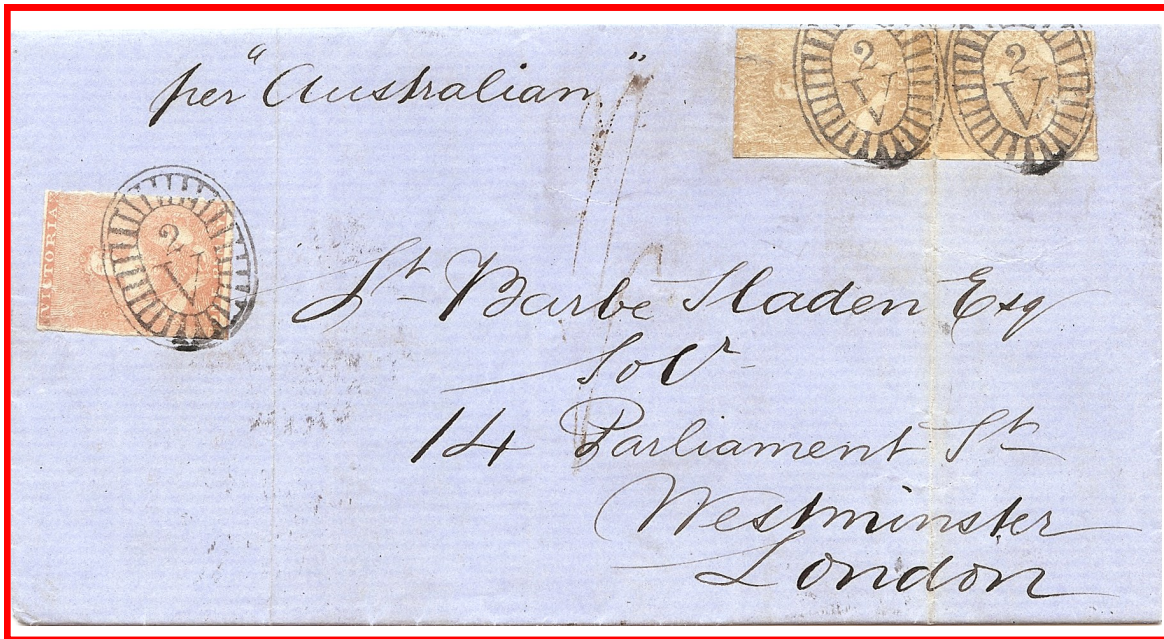 per "Australian"
2 V
2 V
VICTORIA
2 V
St Barbe Sladen Esq
Solr
14 Parliament St
Westminster
London